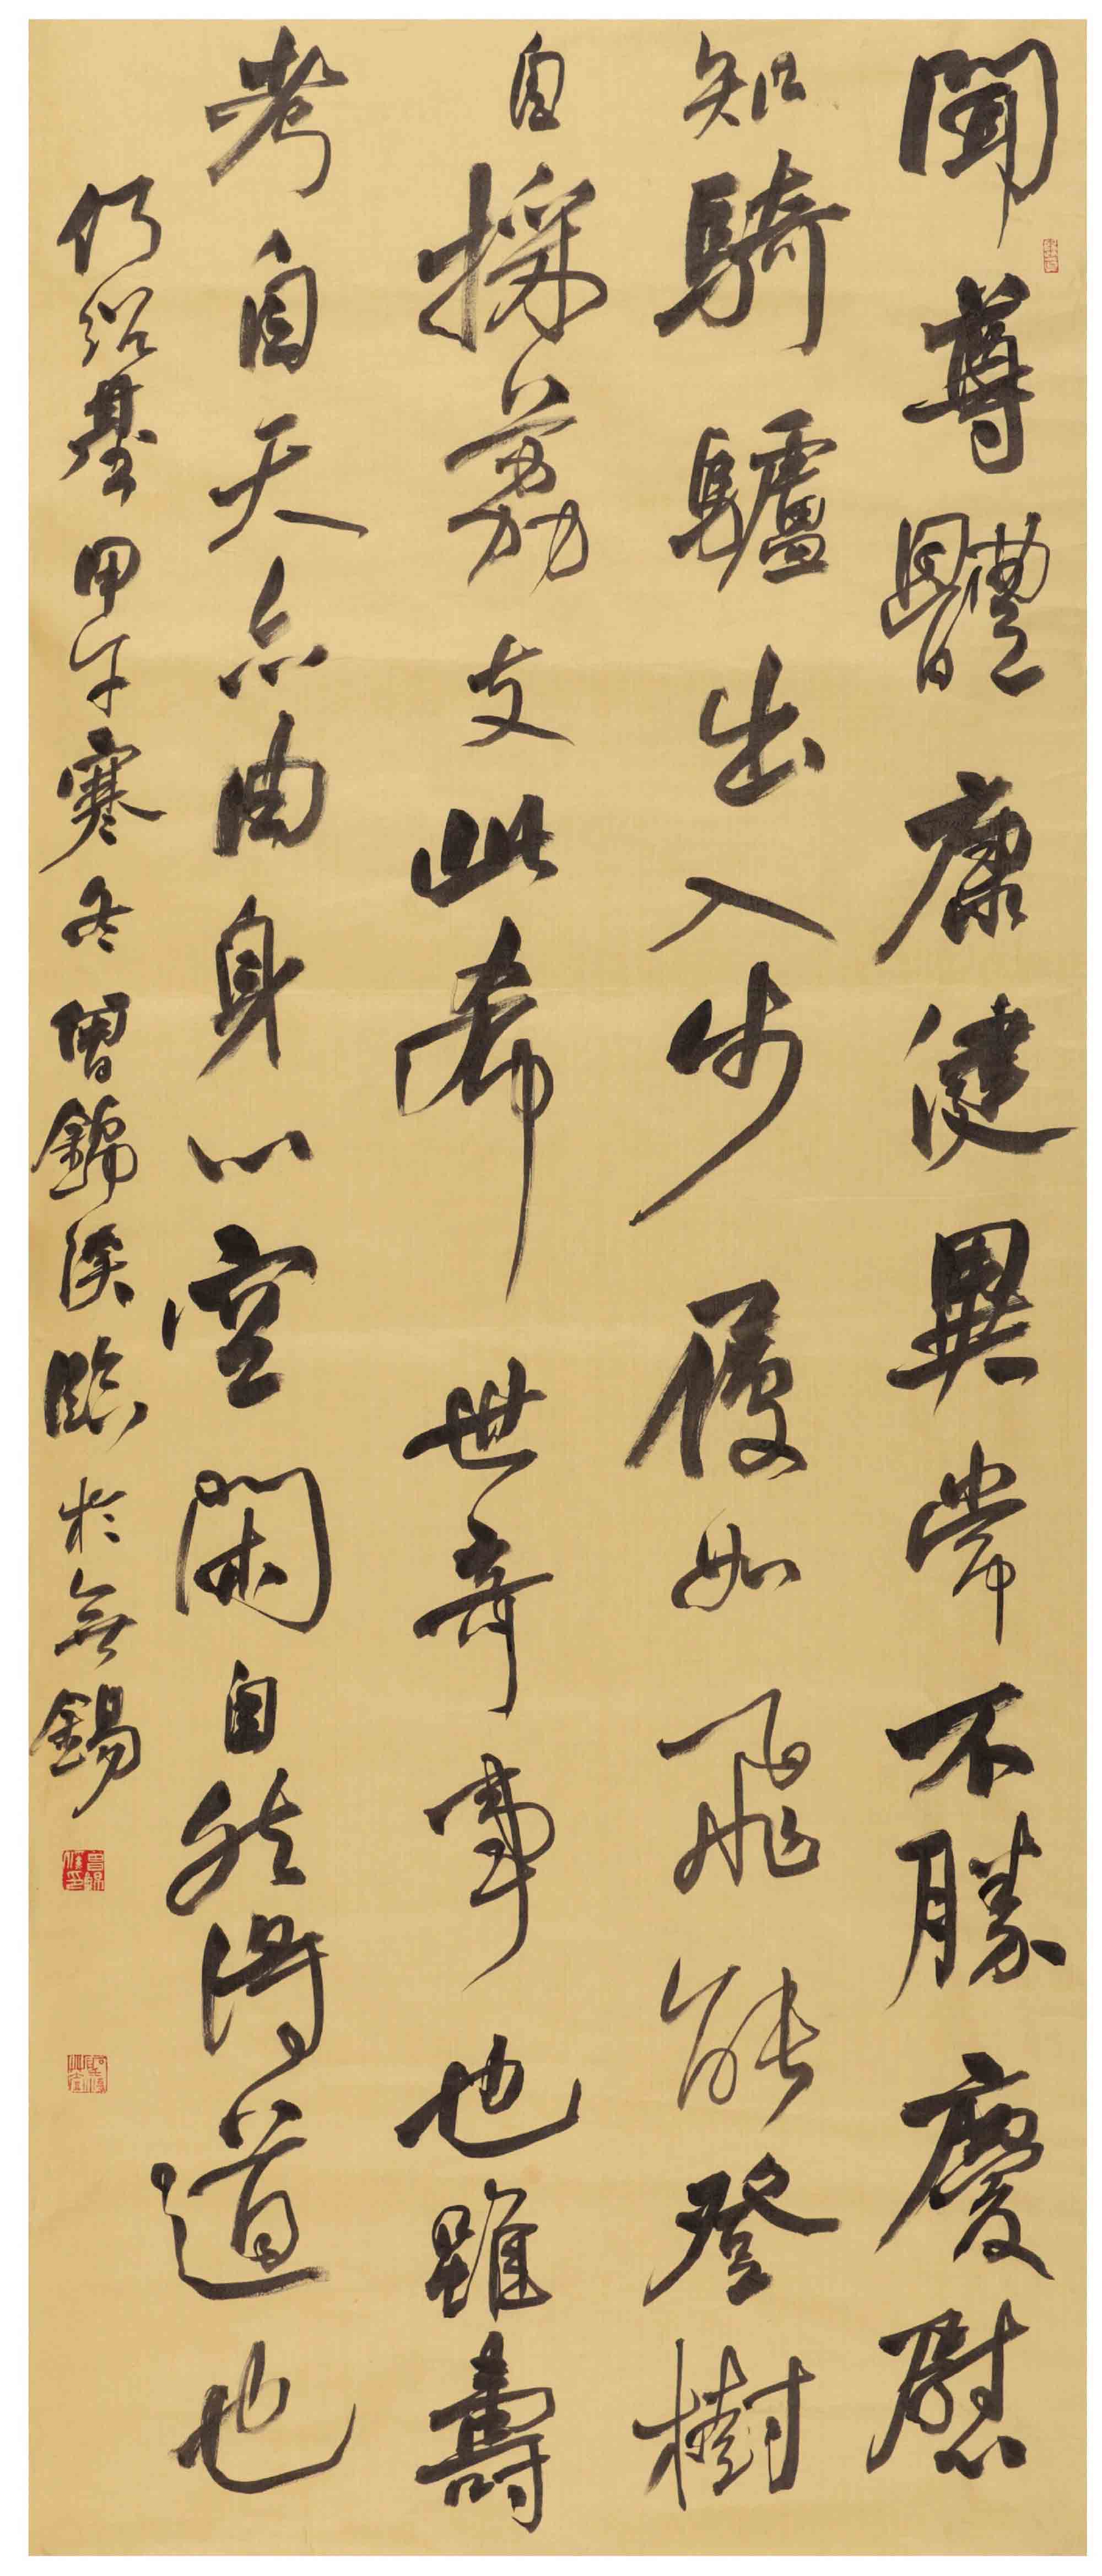 聞尊體康健異常不勝慶慰
知騎驢出入步履如飛能登樹
自採荔支此希世奇事也雖壽
考自天亦由身心空閑自然得道也
何紹基甲午寒冬曾錦溪臨於無錫